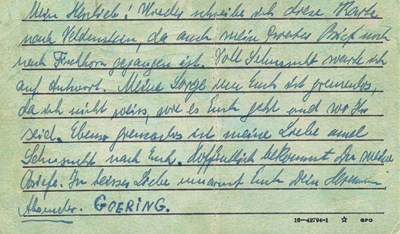 Mein Herzlieb! Wieder schreibe ich diese Karte
nach Veldenstein, da auch mein zweiter Brief noch
nach Fischhorn gegangen ist. Voll Sehnsucht warte ich
auf Antwort. Meine Sorge um Euch ist grenzenlos,
da ich nicht weiss, wie es Euch geht und wo Ihr
seid. Ebenso grenzenlos ist meine Liebe und
Sehnsucht nach Euch. Hoffentlich bekommst Du meine
Briefe. In heisser Liebe umarmt Euch Dein Hermann
Absender. GOERING.
16—42794-1 ☆ GPO